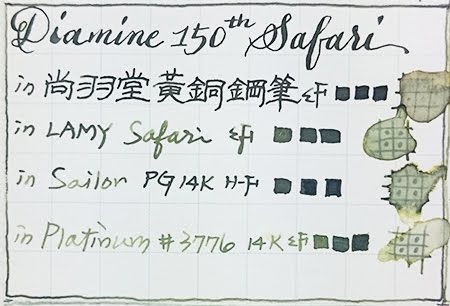 Diamine 150th Safari
in 尚羽堂 黃銅鋼筆 EF
in LAMY Safari EF
in Sailor PG 14K H-F
in Platinum #3776 14K EF